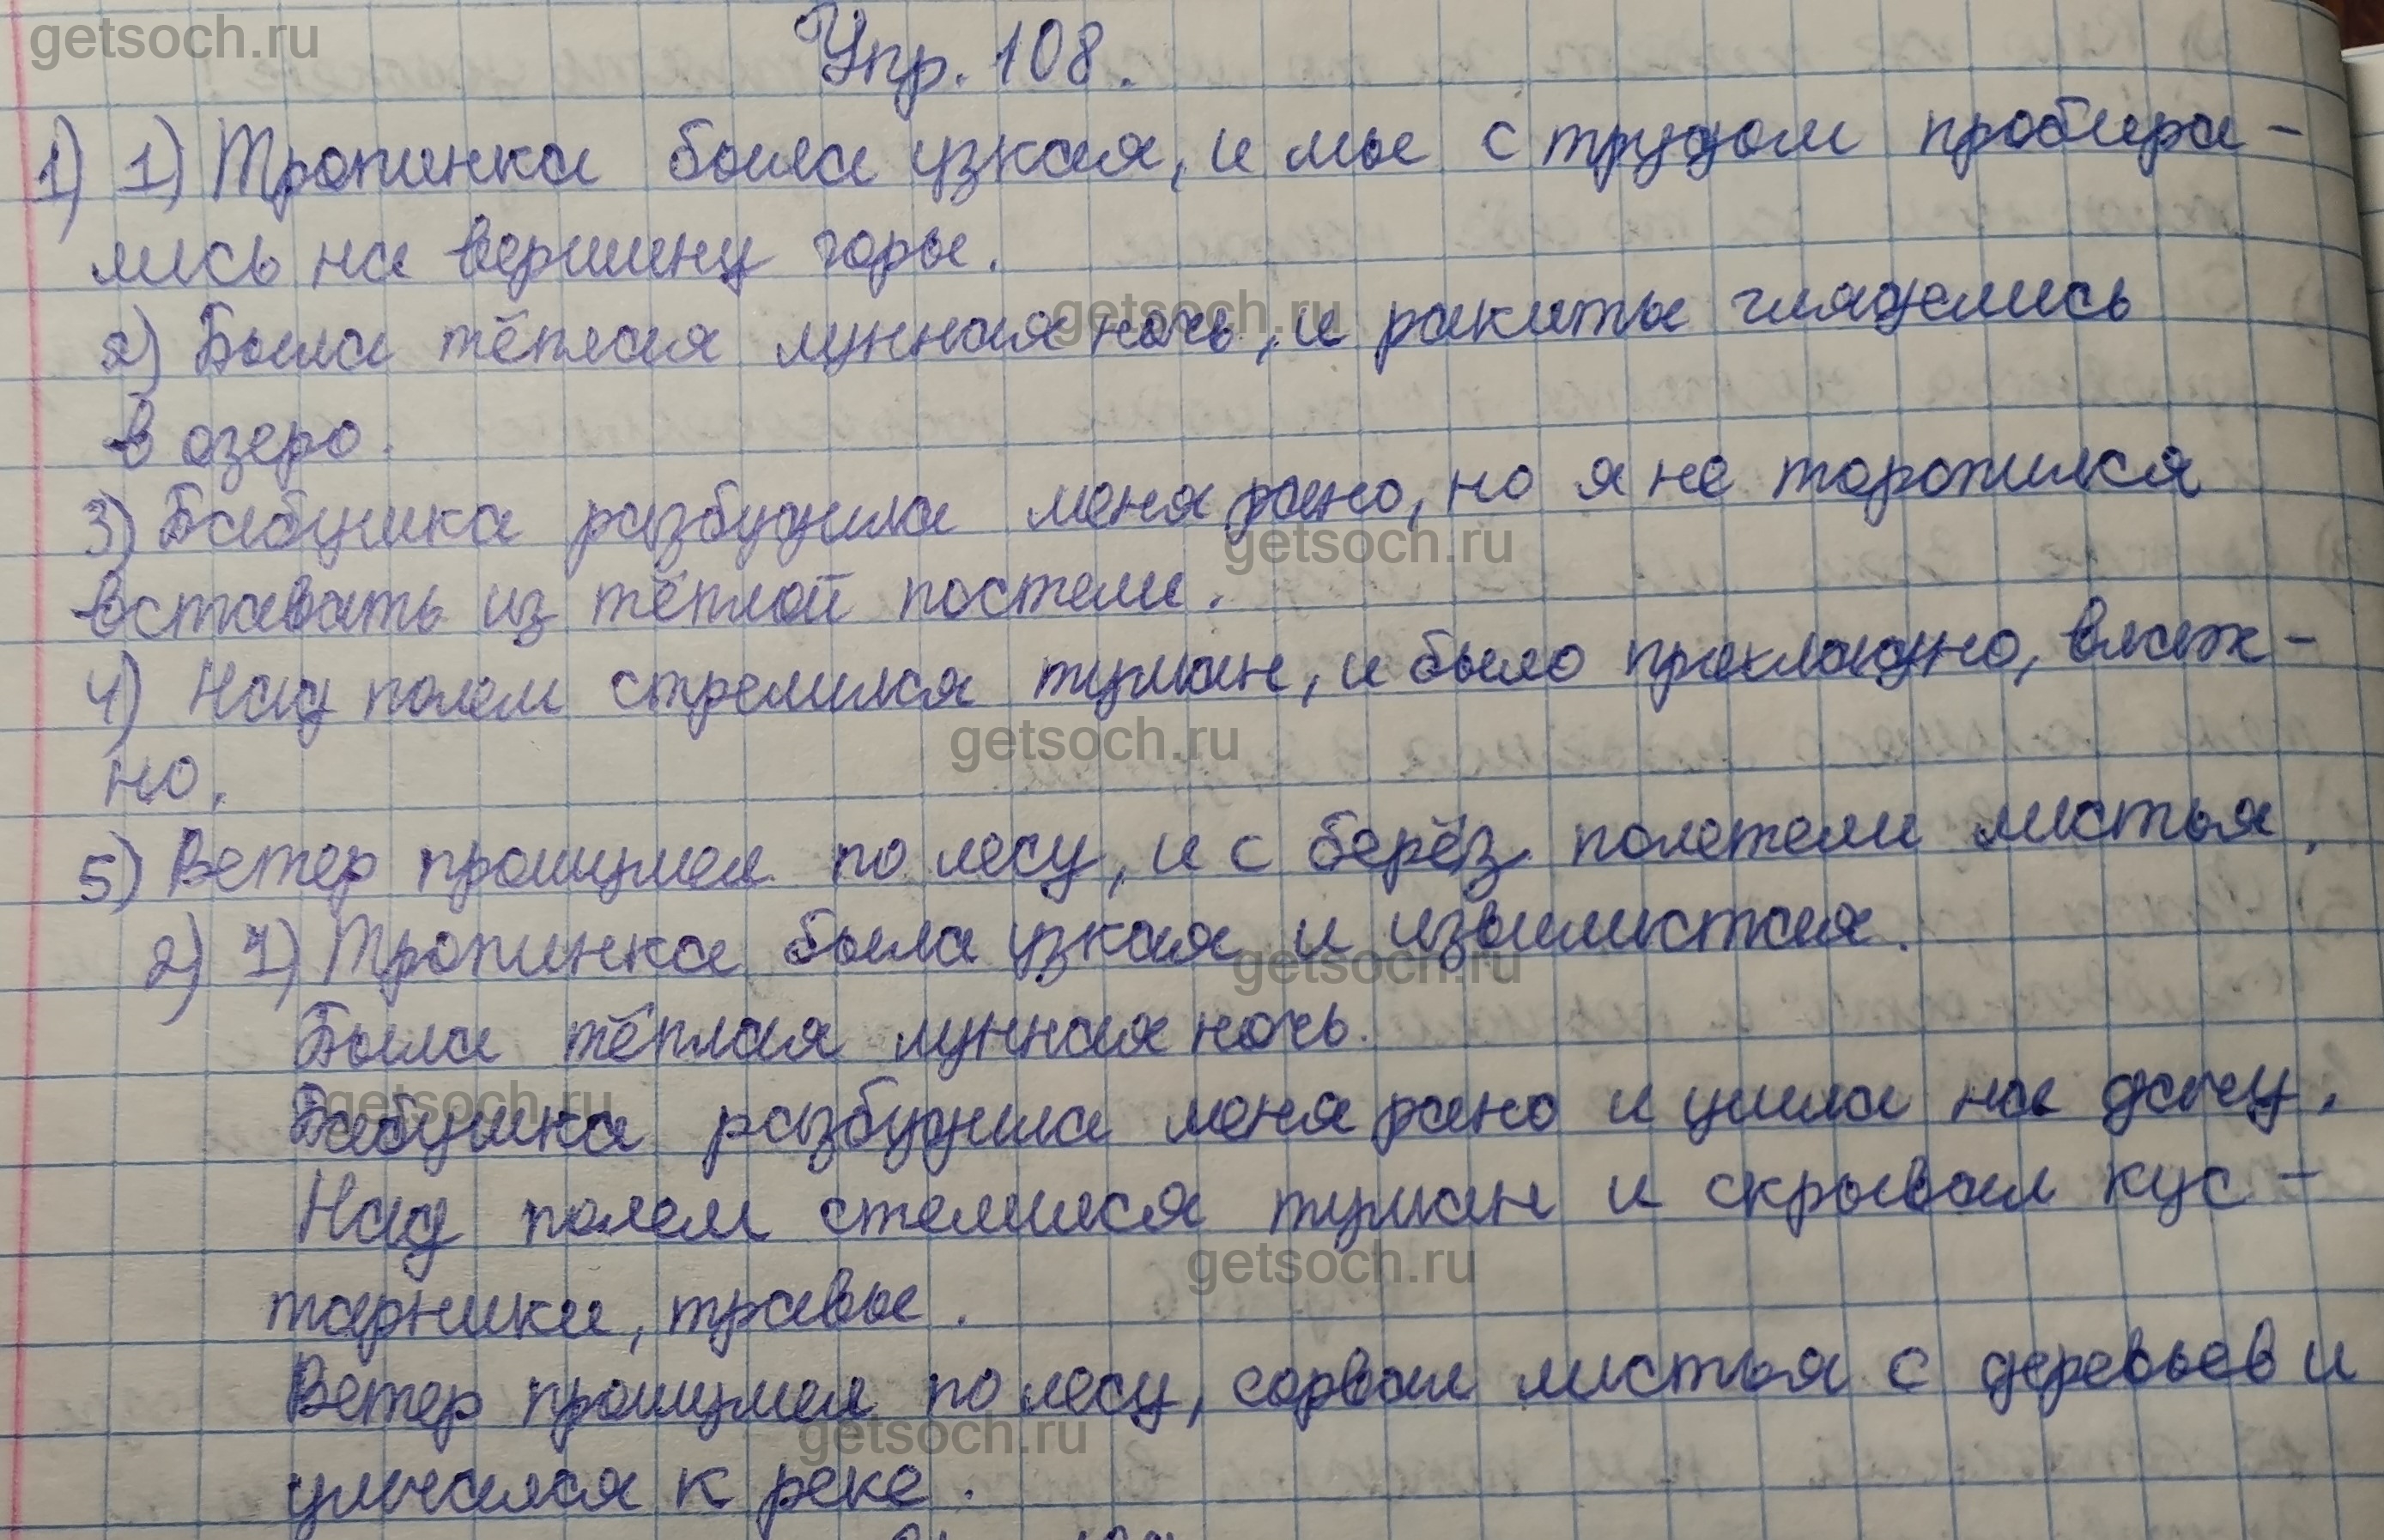 getsoch.ru
Упр. 108.
1) 1) Тропинка была узкая, и мы с трудом пробира-
лись на вершину горы.
getsoch.ru
2) Была тёплая лунная ночь, и ракиты гляделись
в озеро.
3) Бабушка разбудила меня рано, но я не торопился
getsoch.ru
вставать из тёплой постели.
4) Над полем стремился туман, и было прохладно, влаж-
getsoch.ru
но.
5) Ветер прошумел по лесу, и с берёз полетели листья.
2) 1) Тропинка была узкая и извилистая.
getsoch.ru
Была тёплая лунная ночь.
getsoch.ru
Бабушка разбудила меня рано и ушла на дачу.
Над полем стелился туман и скрывал кус-
getsoch.ru
тарники, травы.
Ветер прошумел по лесу, сорвал листья с деревьев и
getsoch.ru
умчался к реке.